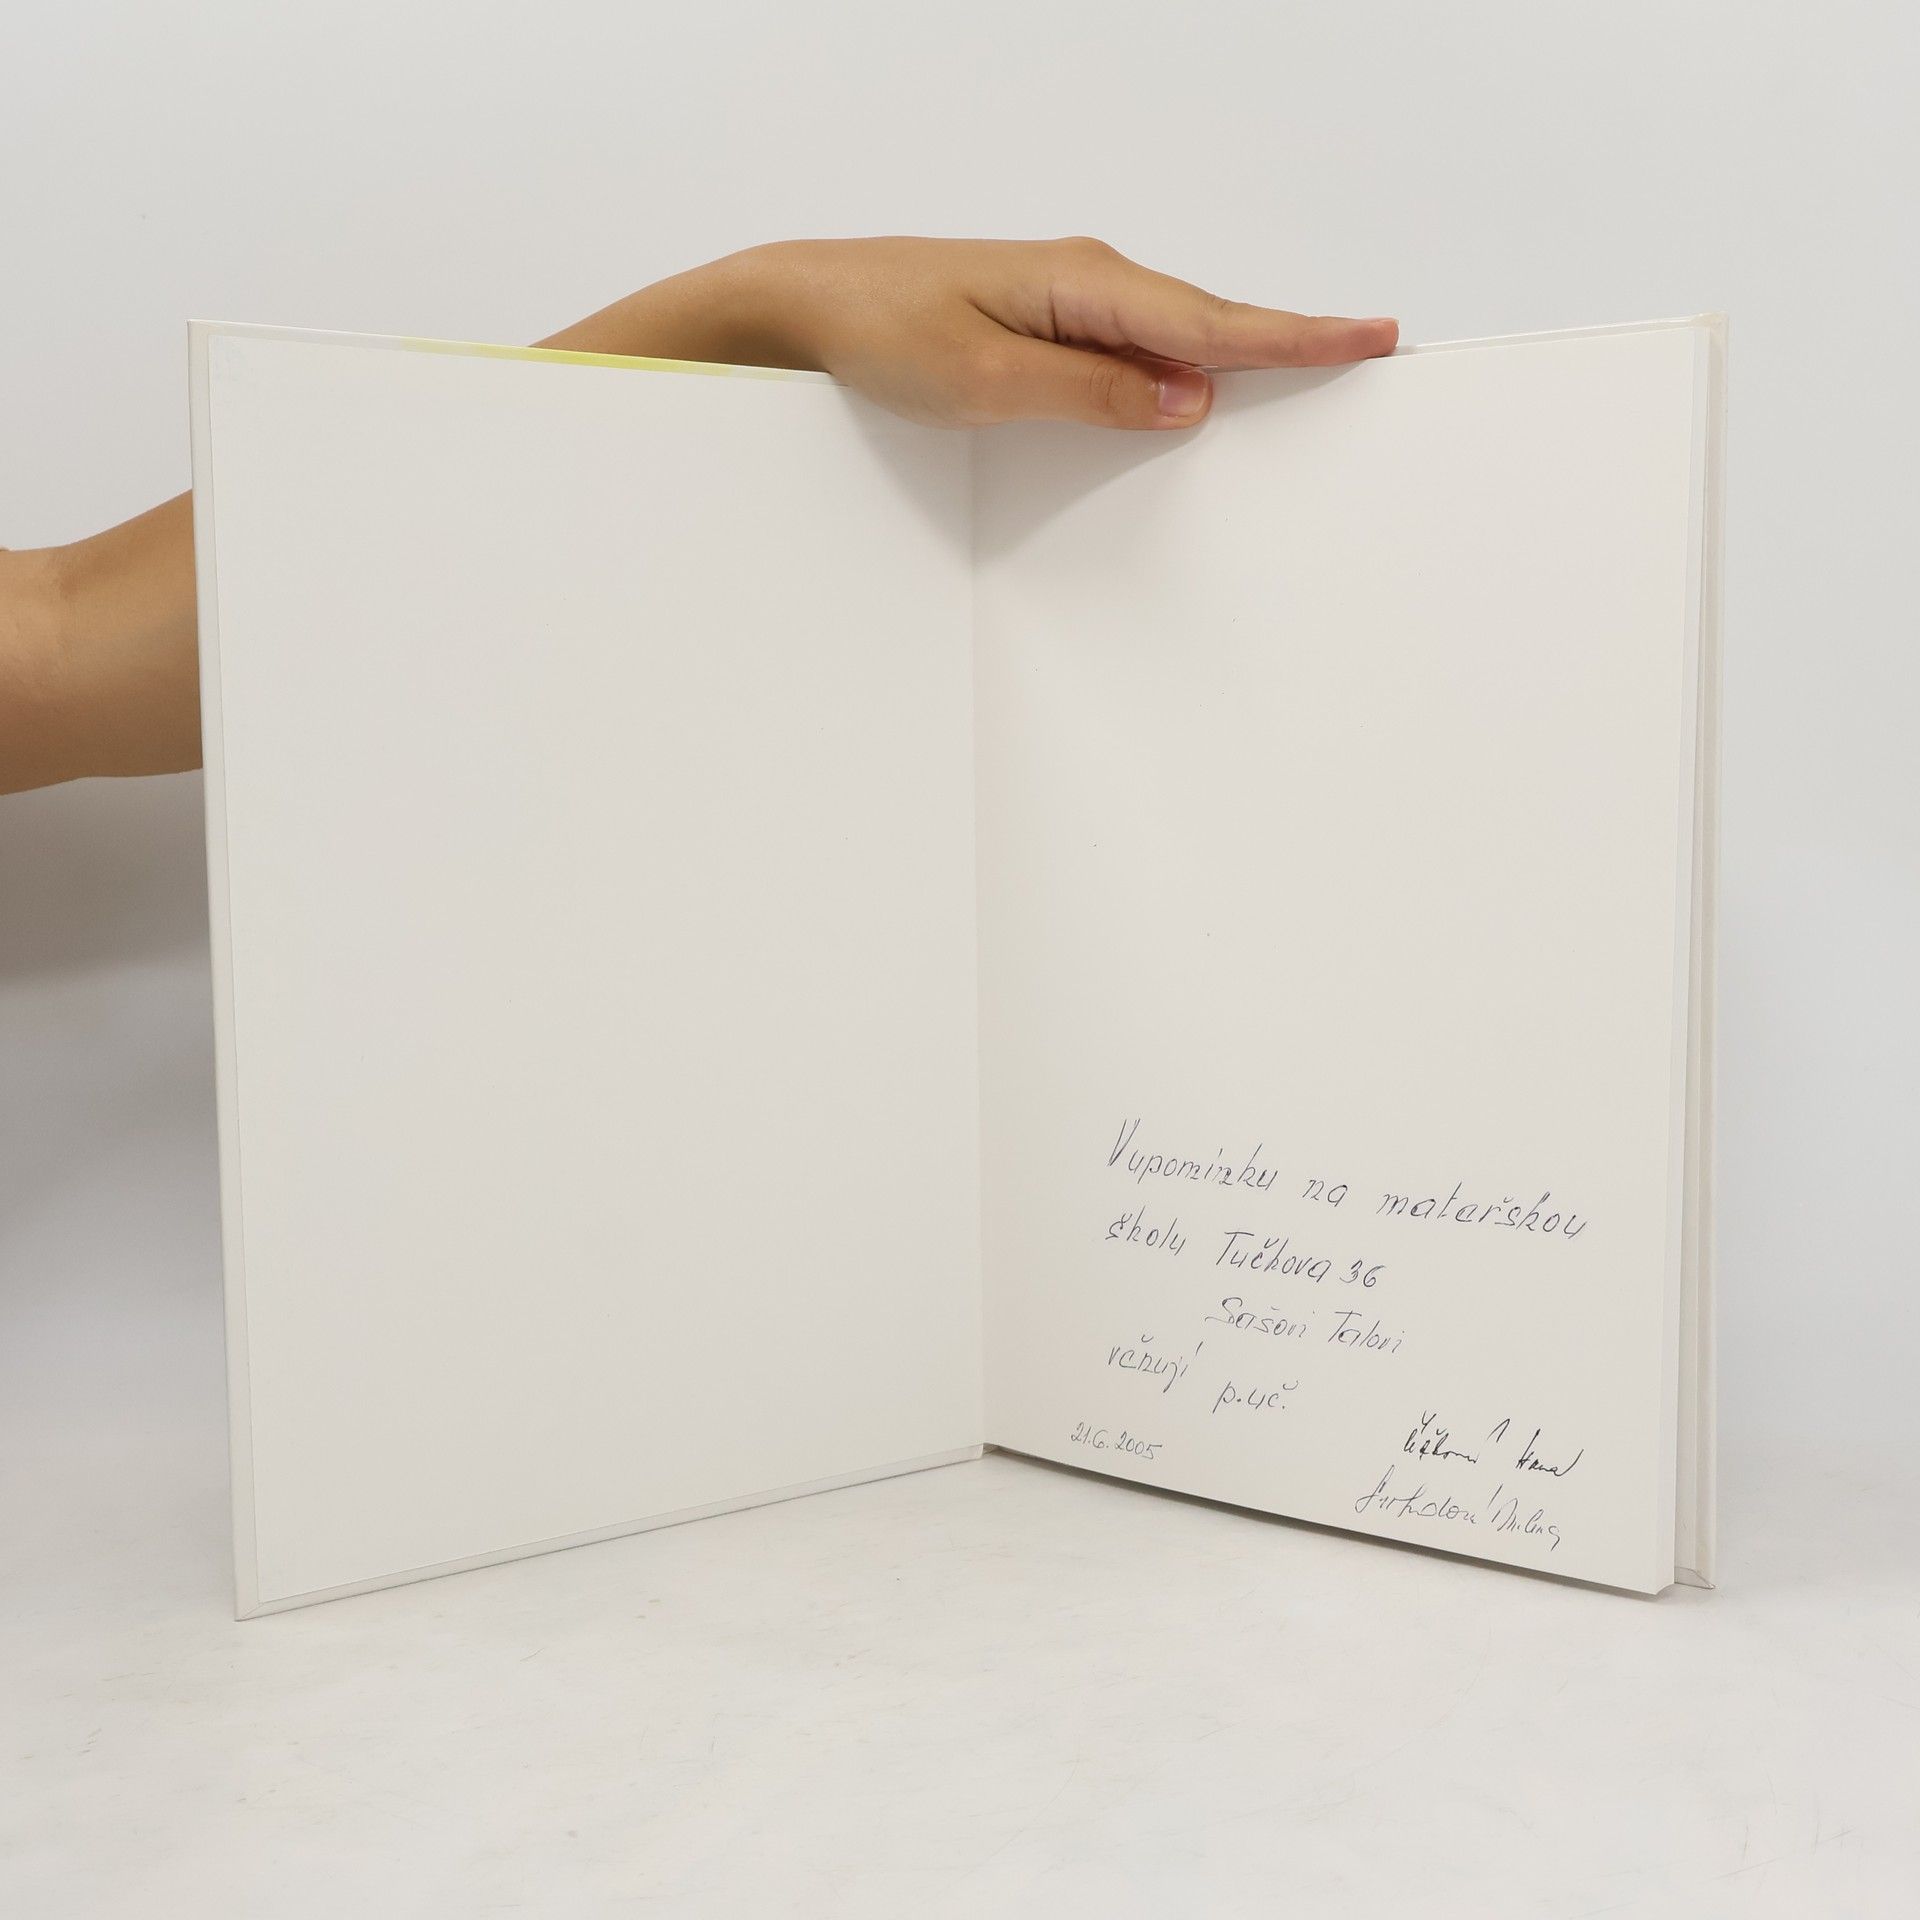 Vzpomínku na mateřskou
školu Tučkova 36
Sašovi Talovi
věnují
p.uč.
21.6.2005
Hana
Milena